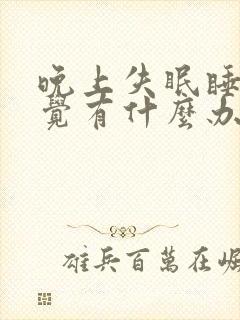 晚上失眠睡
覺有什麼办
雄兵百萬在崛